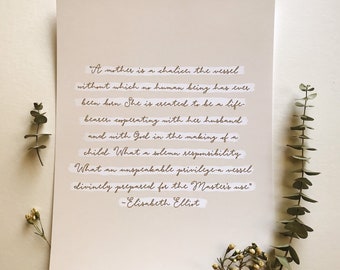 "A mother is a chalice, the vessel
without which no human being has ever
been born. She is created to be a life-
bearer, cooperating with her husband
and with God in the making of a
child. What a solemn responsibility.
What an unspeakable privilege-a vessel
divinely prepared for the Master's use."
-Elisabeth Elliot